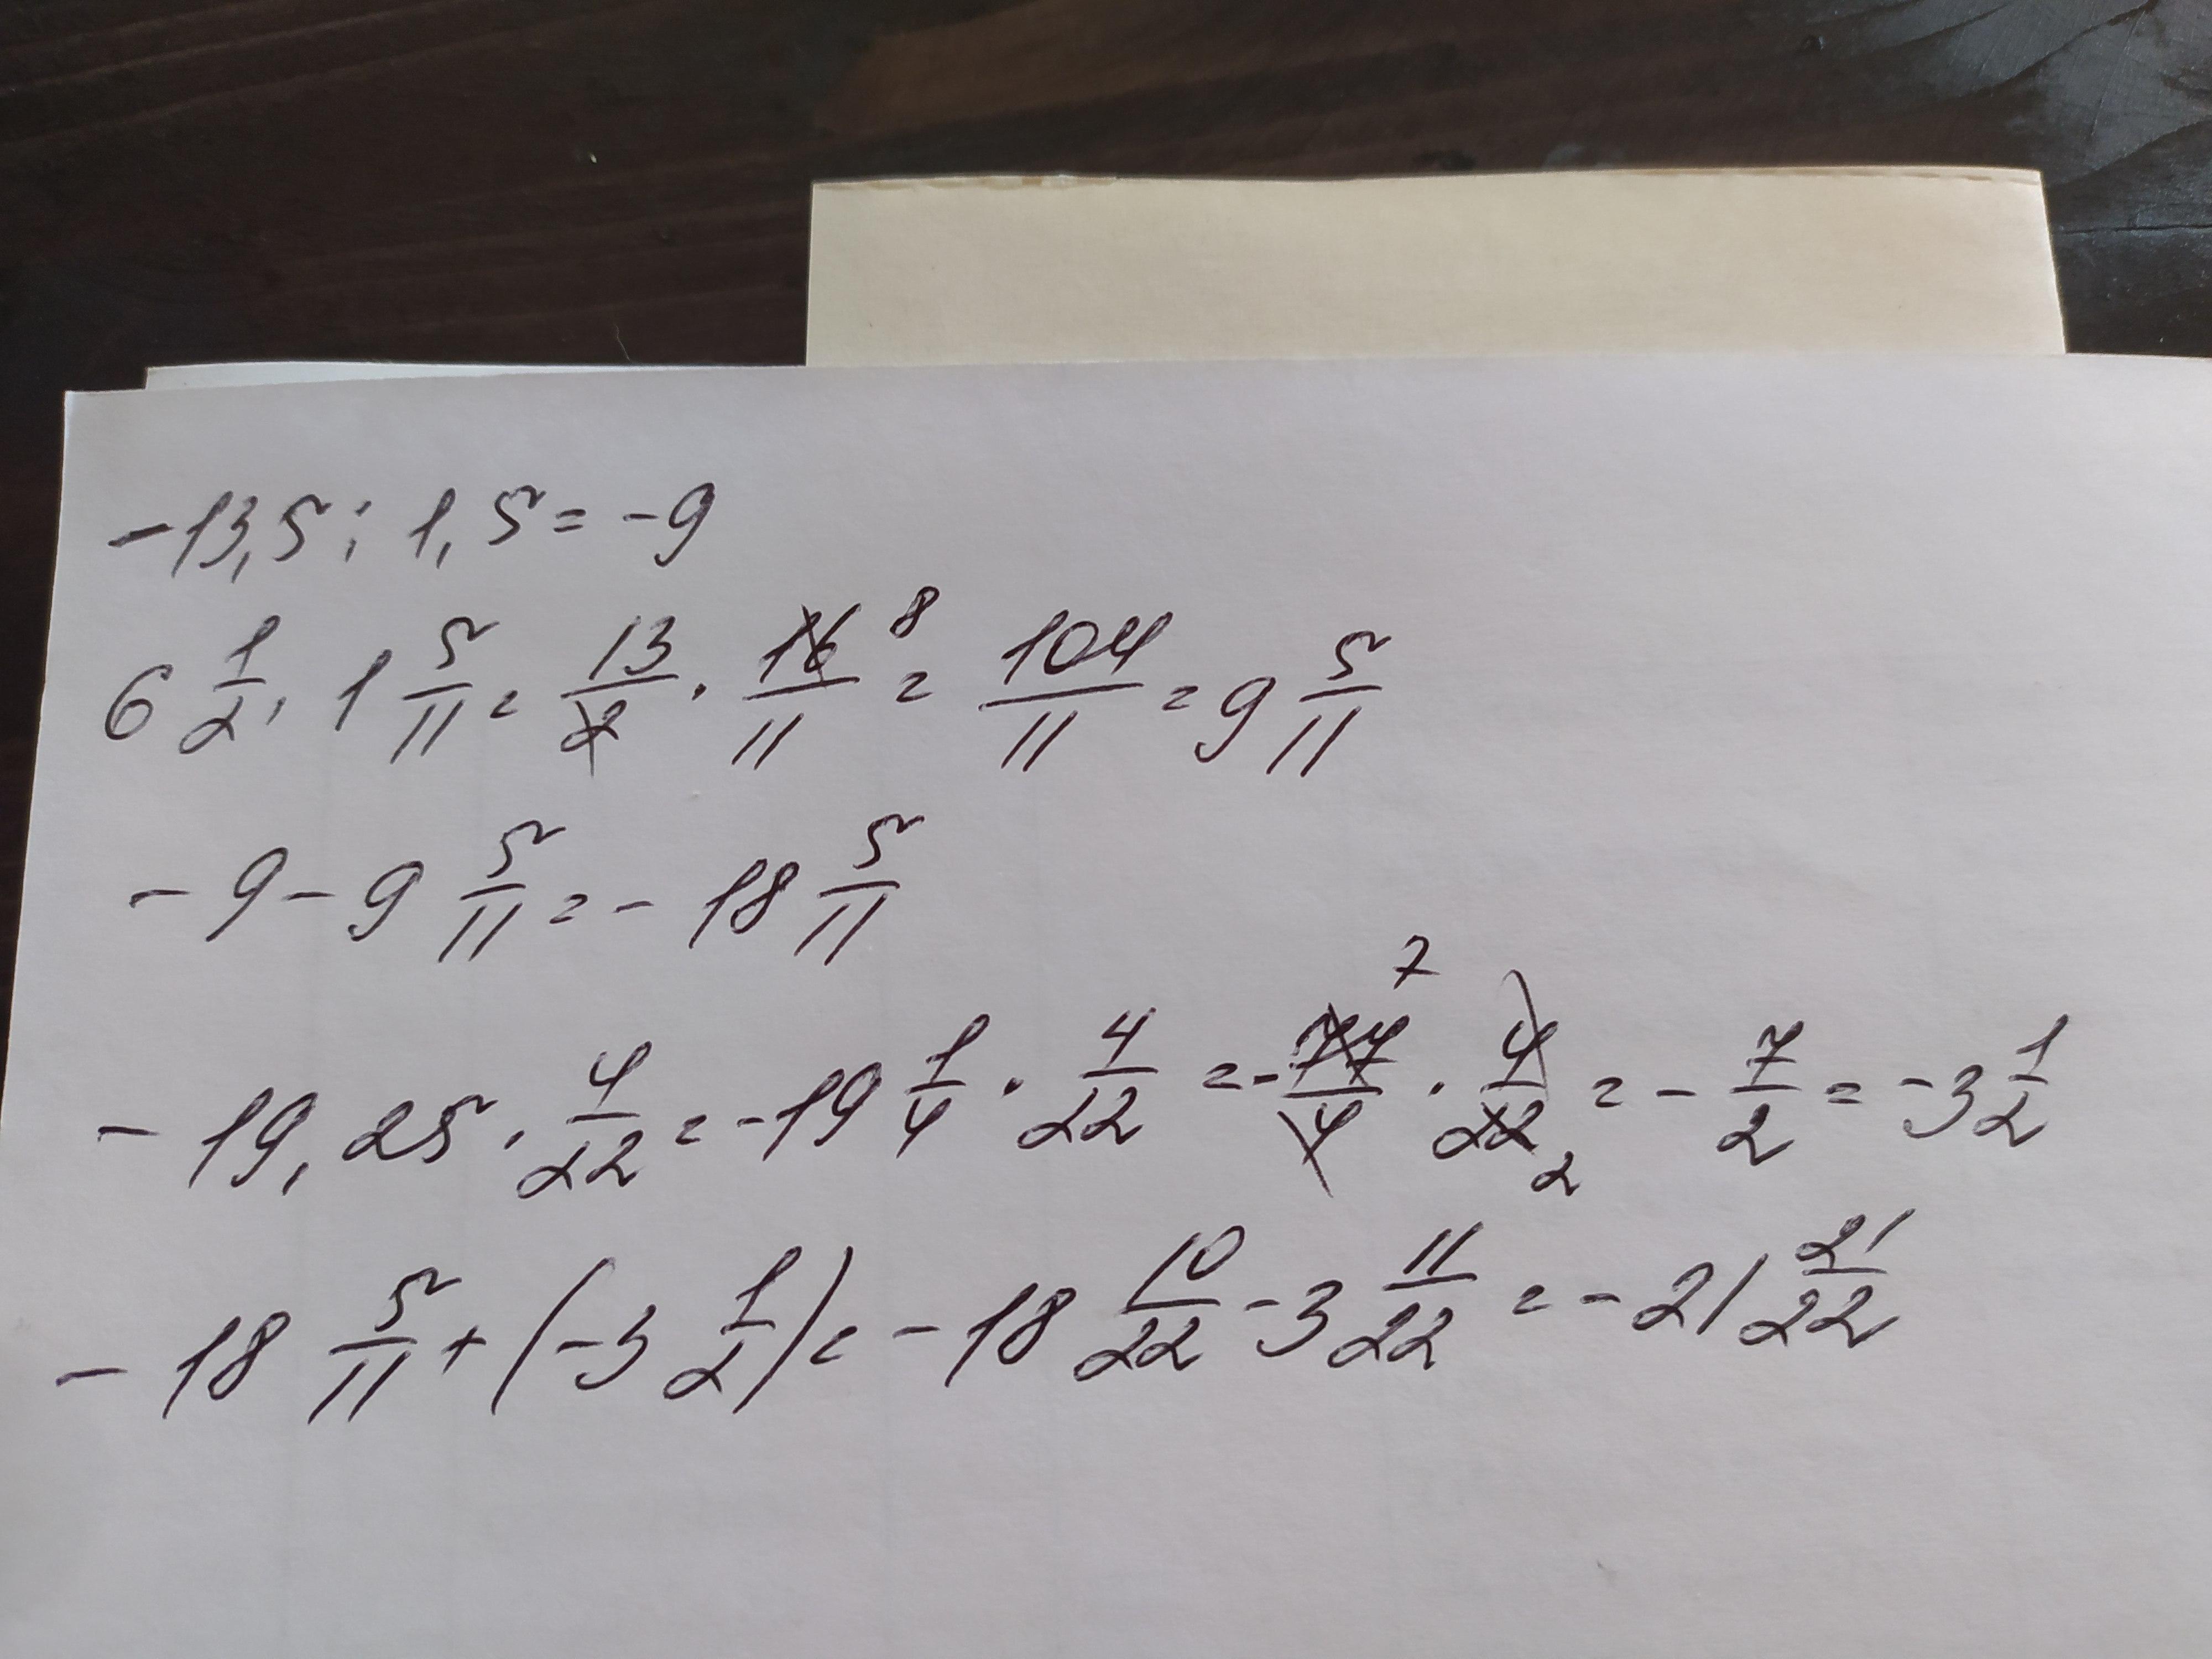 -13,5 : 1,5 = -9
6 1/2 · 1 5/11 = 13/2 · 16/11 8 = 104/11 = 9 5/11
- 9 - 9 5/11 = - 18 5/11
- 19,25 · 4/22 = -19 1/4 · 4/22 = - 77/4 7 · 4/22 2 = - 7/2 = -3 1/2
- 18 5/11 + (-3 1/2) = - 18 10/22 - 3 11/22 = - 21 21/22